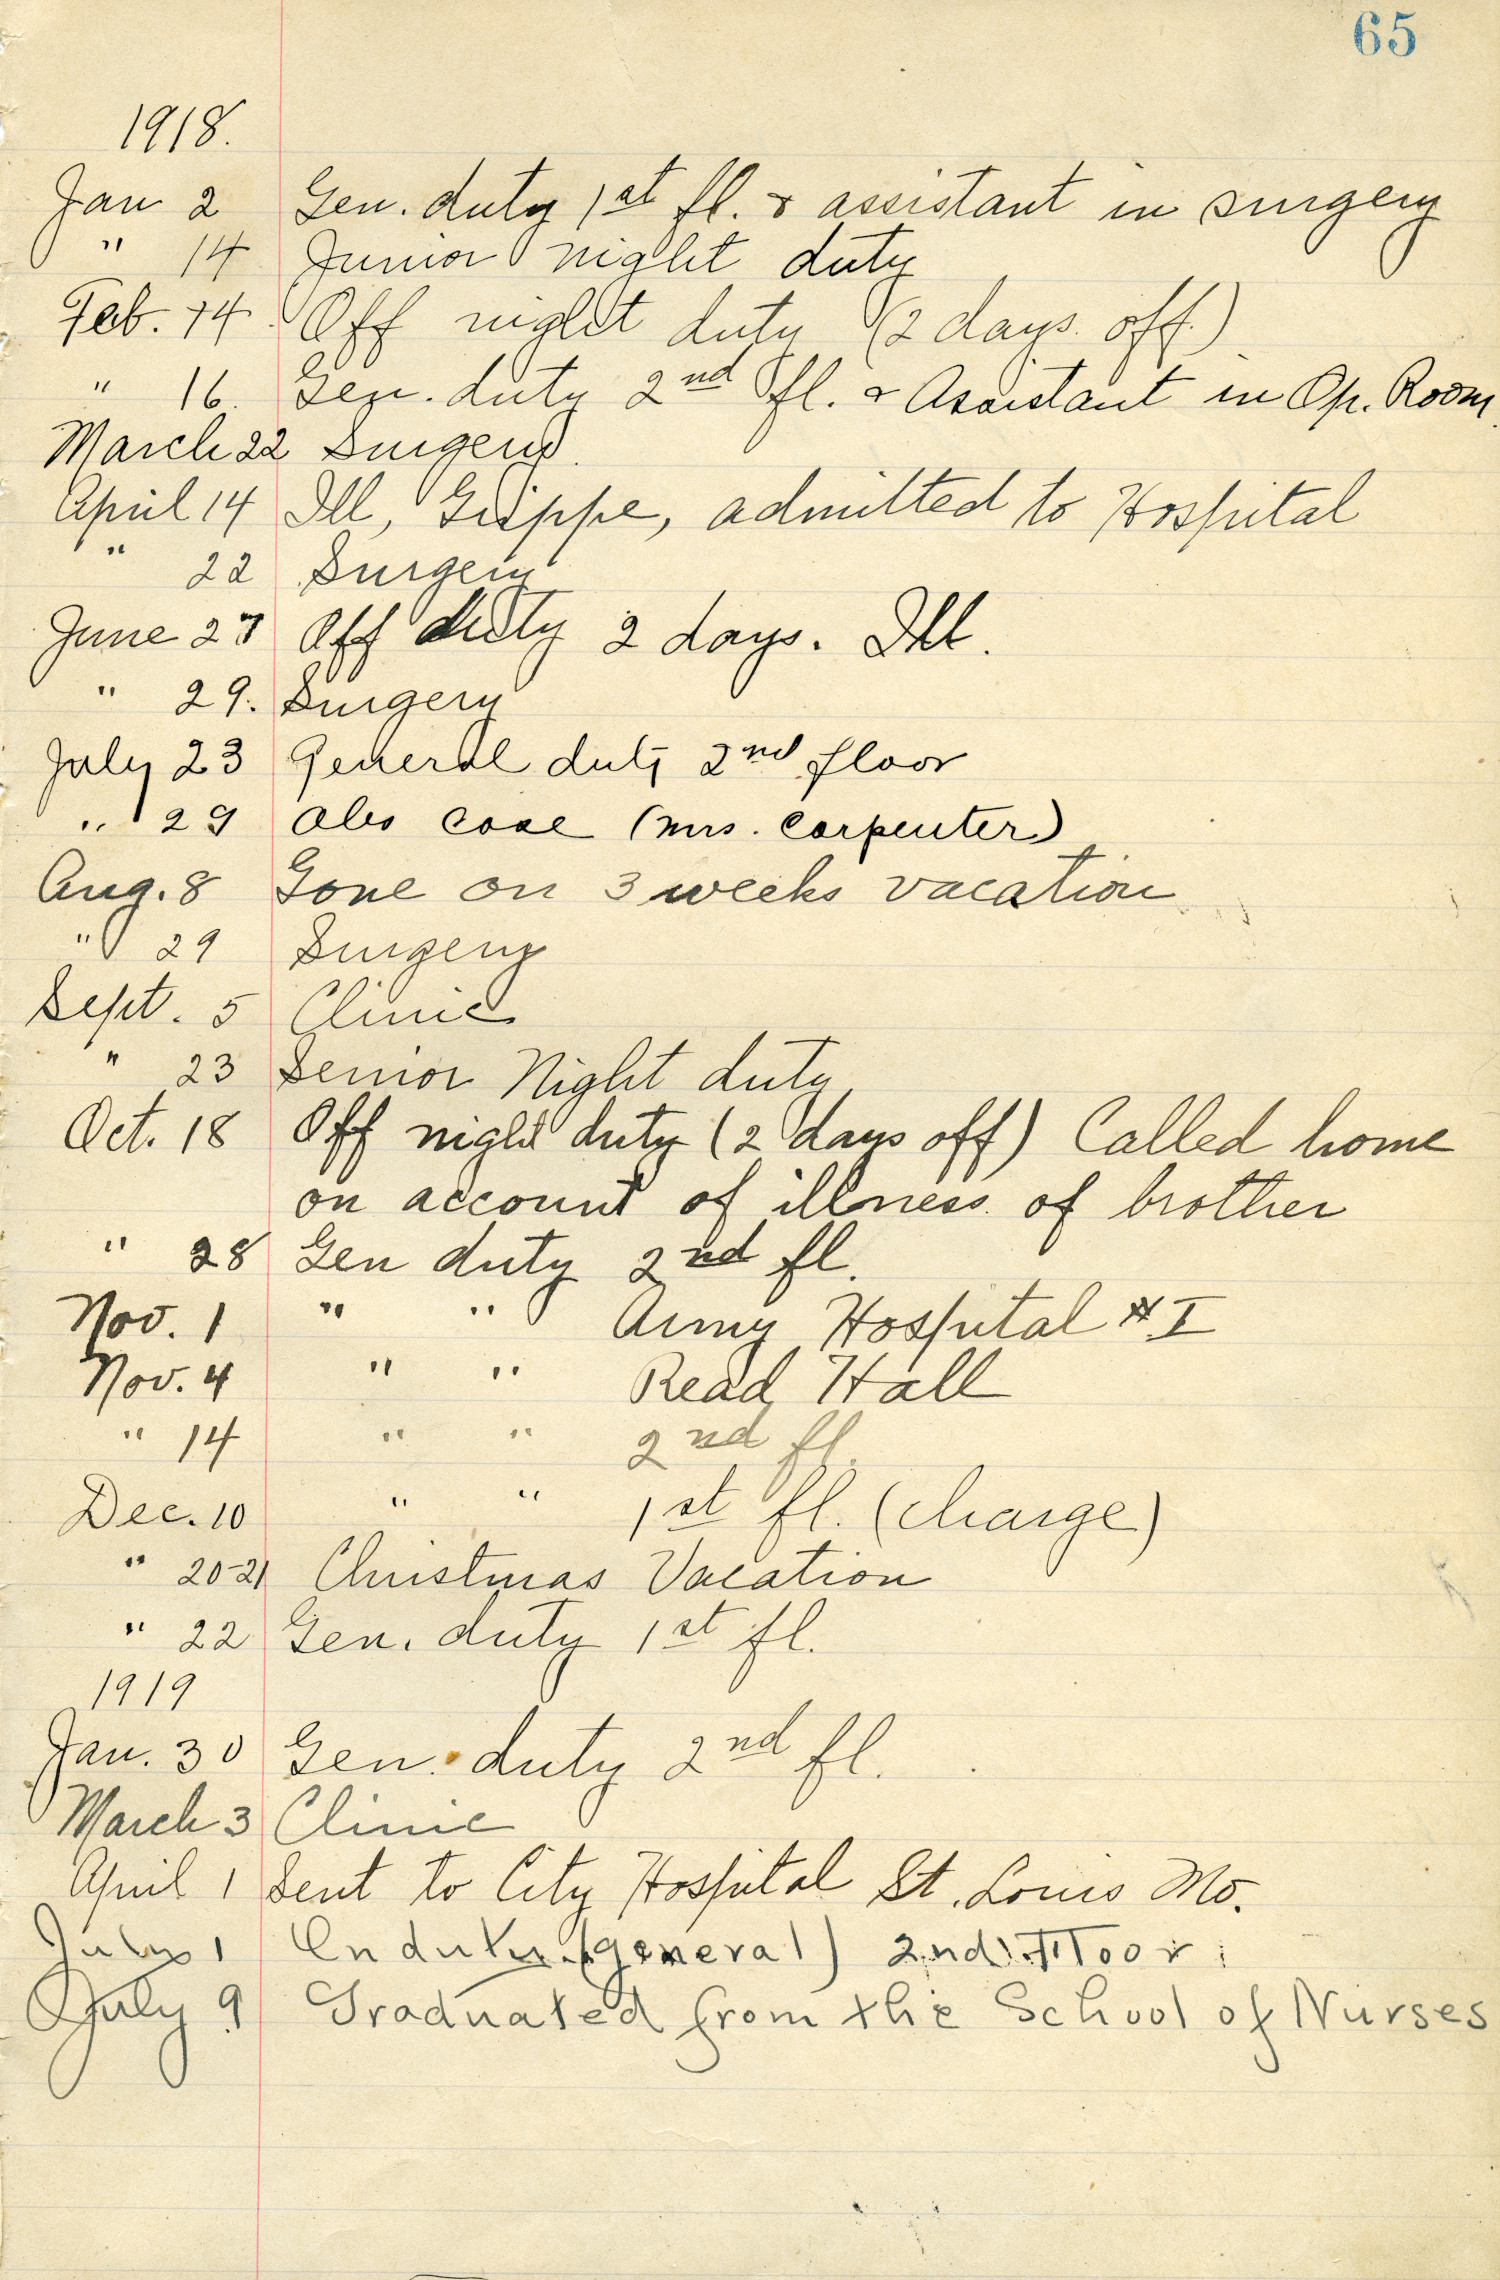 65
1918.
Jan 2 Gen. duty 1st fl. & assistant in surgery
" 14 Junior night duty
Feb. 14 Off night duty (2 days off.)
" 16. Gen. duty 2nd fl. & Assistant in Op. Room.
March 22 Surgery.
April 14 Ill, Grippe, admitted to Hospital
" 22 Surgery
June 27 Off duty 2 days. Ill.
" 29. Surgery
July 23 General duty 2nd floor
" 29 Obs case (Mrs. Carpenter)
Aug. 8 Gone on 3 weeks vacation
" 29 Surgery
Sept. 5 Clinic
" 23 Senior Night duty
Oct. 18 Off night duty (2 days off) Called home
on account of illness of brother
" 28 Gen duty 2nd fl.
Nov. 1 " " Army Hospital # I
Nov. 4 " " Read Hall
" 14 " " 2nd fl.
Dec. 10 " " 1st fl. (charge)
" 20-21 Christmas Vacation
" 22 Gen. duty 1st fl.
1919
Jan. 30 Gen. duty 2nd fl.
March 3 Clinic
April 1 Sent to City Hospital St. Louis Mo.
July 1 On duty (general) 2nd Floor.
July 9 Graduated from the School of Nurses